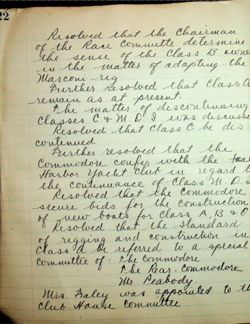 22
Resolved that the Chairman
of the Race Committe determine
the sense of the Class B owners
in the matter of adapting the
Marconi rig
Further resolved that Class A
remain as at present.
The matter of discontinuing
Classes C & M.D.I was discussed
Resolved that Class C be dis
contenued
Further resolved that the
Commodore confer with the
Harbor Yacht Club in regard to
the continuance of Class M.D.I
Resolved that the Commodore
secure bids for the construction
of new boats for class A, B & C
Resolved that the standard
of rigging and construction in
Class A be referred to a special
committee of: The Commodore
The Rear-Commodore
Mr Peabody
Mrs. Faley was appointed to the
Club House Committee